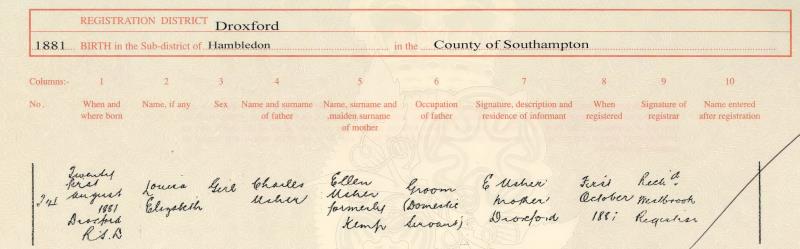 REGISTRATION DISTRICT Droxford
1881 BIRTH in the Sub-district of Hambledon in the County of Southampton
Columns:- 1 2 3 4 5 6 7 8 9 10
No. When and where born Name, if any Sex Name and surname of father Name, surname and maiden surname of mother Occupation of father Signature, description and residence of informant When registered Signature of registrar Name entered after registration
Twenty first August 1881 Droxford R.S.D
Louisa Elizabeth
Girl
Charles Usher
Ellen Usher formerly Kemp
Groom (Domestic Servant)
E Usher Mother Droxford
First October 1881
Westbrook Registrar